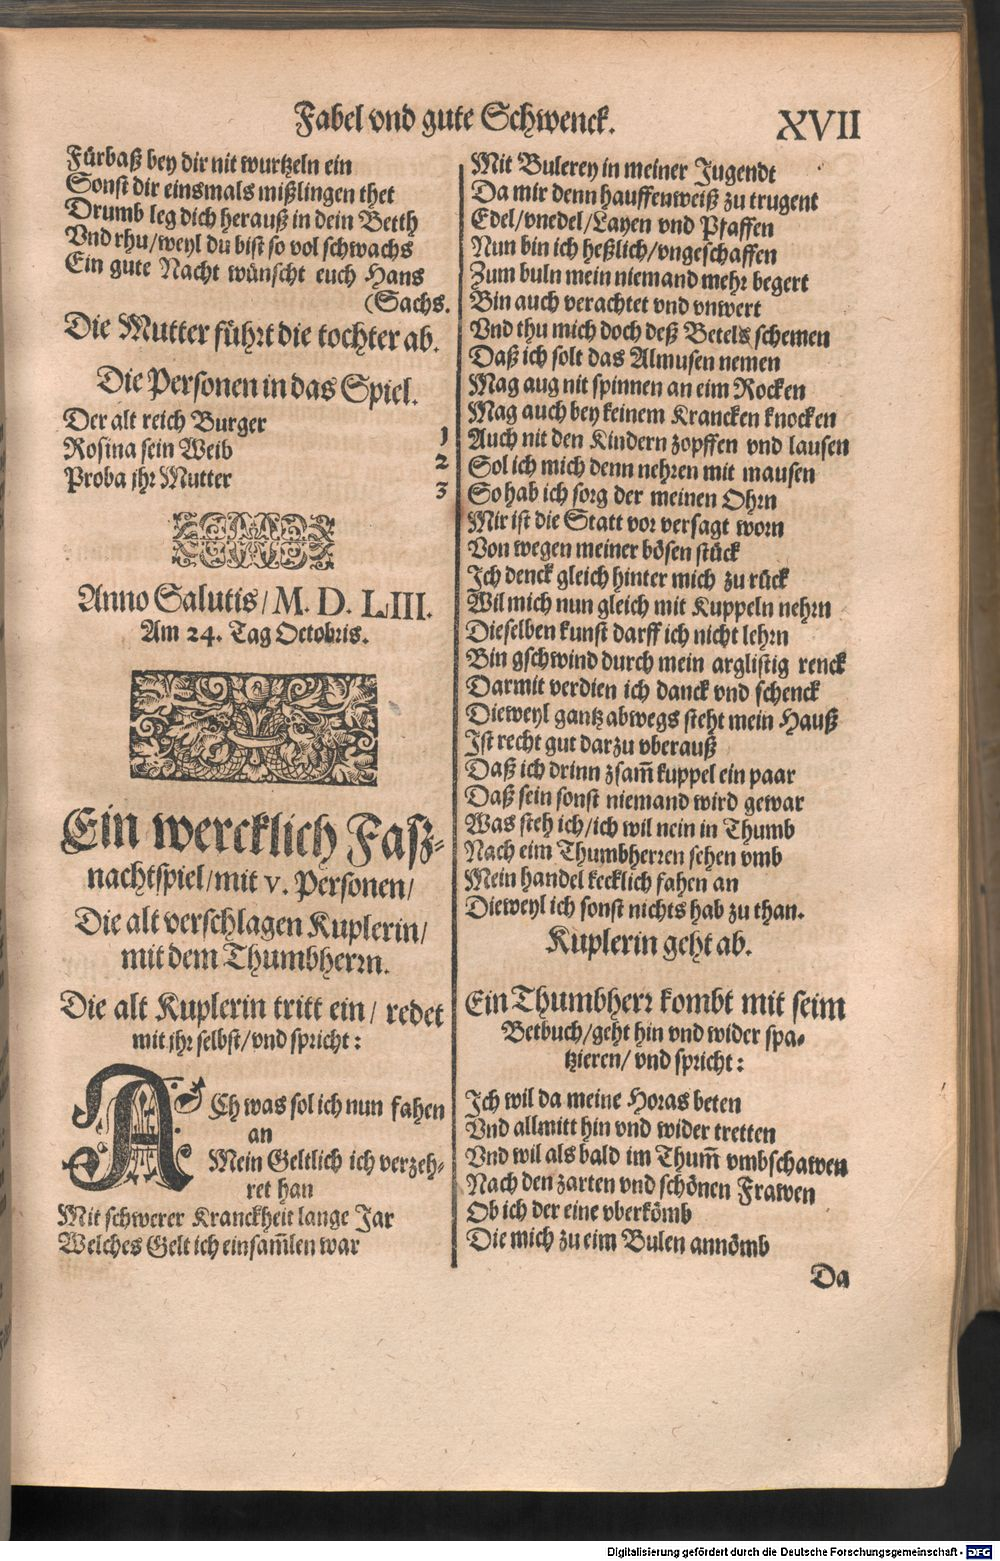 Fabel vnd gute Schwenck. XVII
Fürbaß bey dir nit wurtzeln ein
Sonst dir einsmals mißlingen thet
Drumb leg dich herauß in dein Betth
Vnd rhu/weyl du bist so vol schwachs
Ein gute Nacht wünscht euch Hans
(Sachs.
Die Mutter führt die tochter ab.
Die Personen in das Spiel.
Der alt reich Burger 1
Rosina sein Weib 2
Proba jhr Mutter 3
Anno Salutis/ M. D. LIII.
Am 24. Tag Octobris.
Ein wercklich Faßz-
nachtspiel/mit v. Personen/
Die alt verschlagen Kuplerin/
mit dem Thumbherrn.
Die alt Kuplerin tritt ein/ redet
mit jhr selbst/vnd spricht:
ACh was sol ich nun fahen
an
Mein Geltlich ich verzeh-
ret han
Mit schwerer Kranckheit lange Jar
Welches Gelt ich einsam̃len war
Mit Bulerey in meiner Jugendt
Da mir denn hauffenweiß zu trugent
Edel/vnedel/Layen vnd Pfaffen
Nun bin ich heßlich/vngeschaffen
Zum buln mein niemand mehr begert
Bin auch verachtet vnd vnwert
Vnd thu mich doch deß Betels schemen
Daß ich solt das Almusen nemen
Mag aug nit spinnen an eim Rocken
Mag auch bey keinem Krancken knocken
Auch nit den Kindern zopffen vnd lausen
Sol ich mich denn nehren mit mausen
So hab ich sorg der meinen Ohrn
Mir ist die Statt vor versagt worn
Von wegen meiner bösen stück
Ich denck gleich hinter mich zu rück
Wil mich nun gleich mit Kuppeln nehrn
Dieselben kunst darff ich nicht lehrn
Bin gschwind durch mein arglistig renck
Darmit verdien ich danck vnd schenck
Dieweyl gantz abwegs steht mein Hauß
Ist recht gut darzu vberauß
Daß ich drinn zsam̃ kuppel ein paar
Daß sein sonst niemand wird gewar
Was steh ich/ich wil nein in Thumb
Nach eim Thumbherren sehen vmb
Mein handel kecklich fahen an
Dieweyl ich sonst nichts hab zu than.
Kuplerin geht ab.
Ein Thumbherr kombt mit seim
Betbuch/geht hin vnd wider spa-
tzieren/ vnd spricht:
Ich wil da meine Horas beten
Vnd allmitt hin vnd wider tretten
Vnd wil als bald im Thum̃ vmbschawen
Nach den zarten vnd schönen Frawen
Ob ich der eine vberkömb
Die mich zu eim Bulen annömb
Da
Digitalisierung gefördert durch die Deutsche Forschungsgemeinschaft - DFG